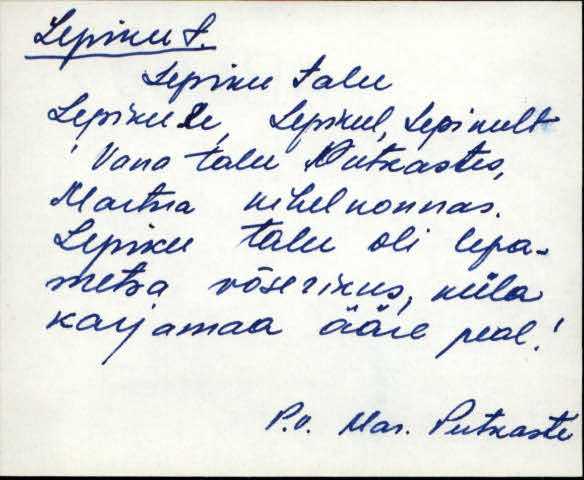 Lepiku t.
Lepiku talu
Lepikule, Lepikul, Lepikult
Vana talu Putkastes,
Martna kihelkonnas.
Lepiku talu oli lepa-
metsa võserikus, küla
karjamaa ääre peal!
P.v. Mar. Putkaste